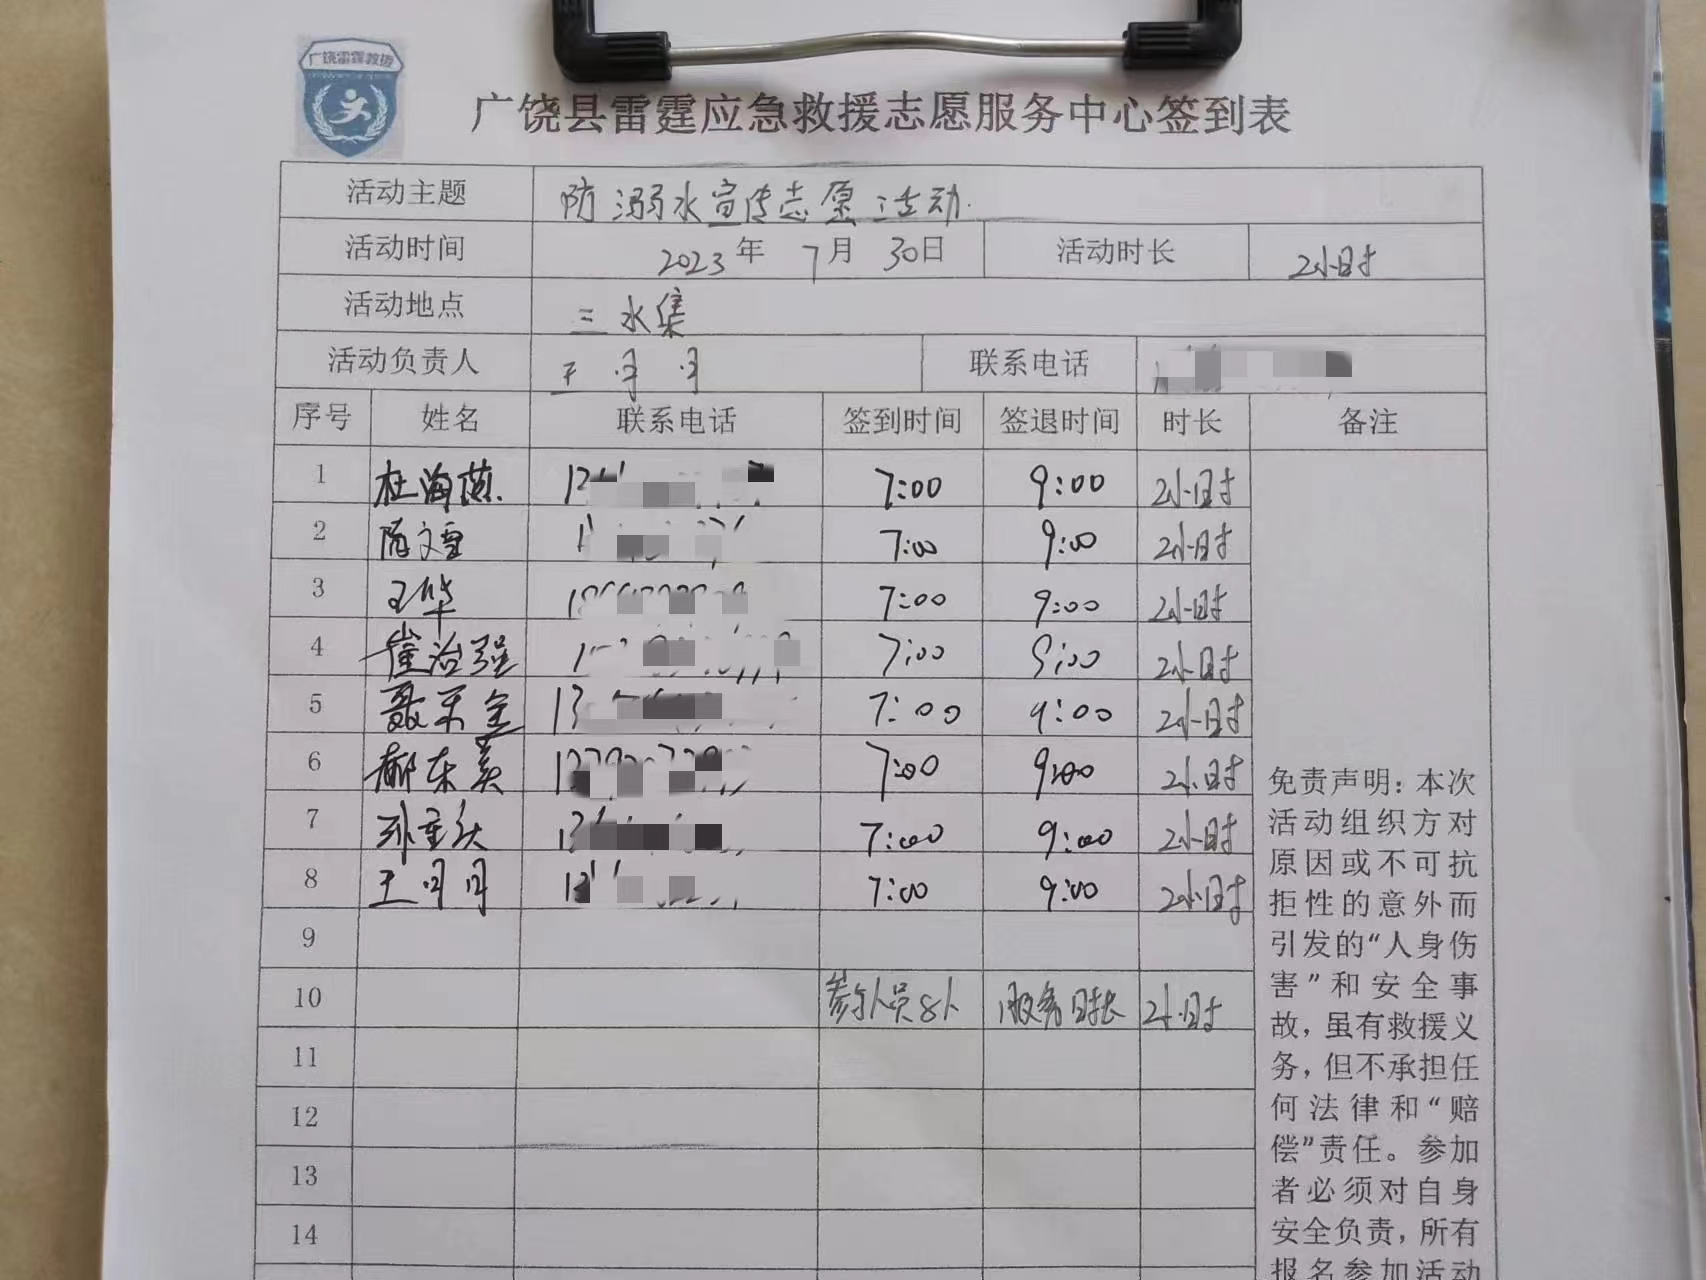 广饶雷霆救援
广饶县雷霆应急救援志愿服务中心签到表
活动主题 防溺水宣传志愿活动.
活动时间 2023年 7月 30日 活动时长 2小时
活动地点 三水集
活动负责人 王月月 联系电话
序号 姓名 联系电话 签到时间 签退时间 时长 备注
1 杜海燕. 7:00 9:00 2小时
2 隋文雪 7:00 9:00 2小时
3 王华 7:00 9:00 2小时
4 崔治强 7:00 9:00 2小时
5 聂 金 7:00 9:00 2小时
6 郝东美 7:00 9:00 2小时
7 孙 7:00 9:00 2小时
8 王月月 7:00 9:00 2小时
9
10 参与人员8人 服务时长 2小时
11
12
13
14
免责声明：本次
活动组织方对
原因或不可抗
拒性的意外而
引发的“人身伤
害”和安全事
故，虽有救援义
务，但不承担任
何法律和“赔
偿”责任。参加
者必须对自身
安全负责，所有
报名参加活动